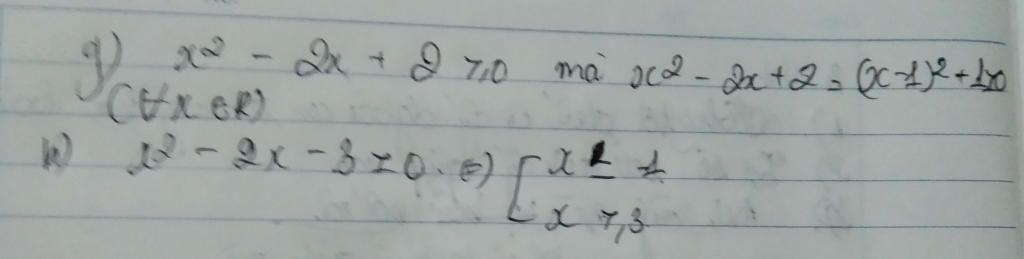 g) x² - 2x + 2 ≥ 0 mà x² - 2x + 2 = (x-1)² + 1 > 0
(∀x ∈ R)
h) x² - 2x - 3 ≥ 0 ⇔ [ x ≤ -1
x ≥ 3